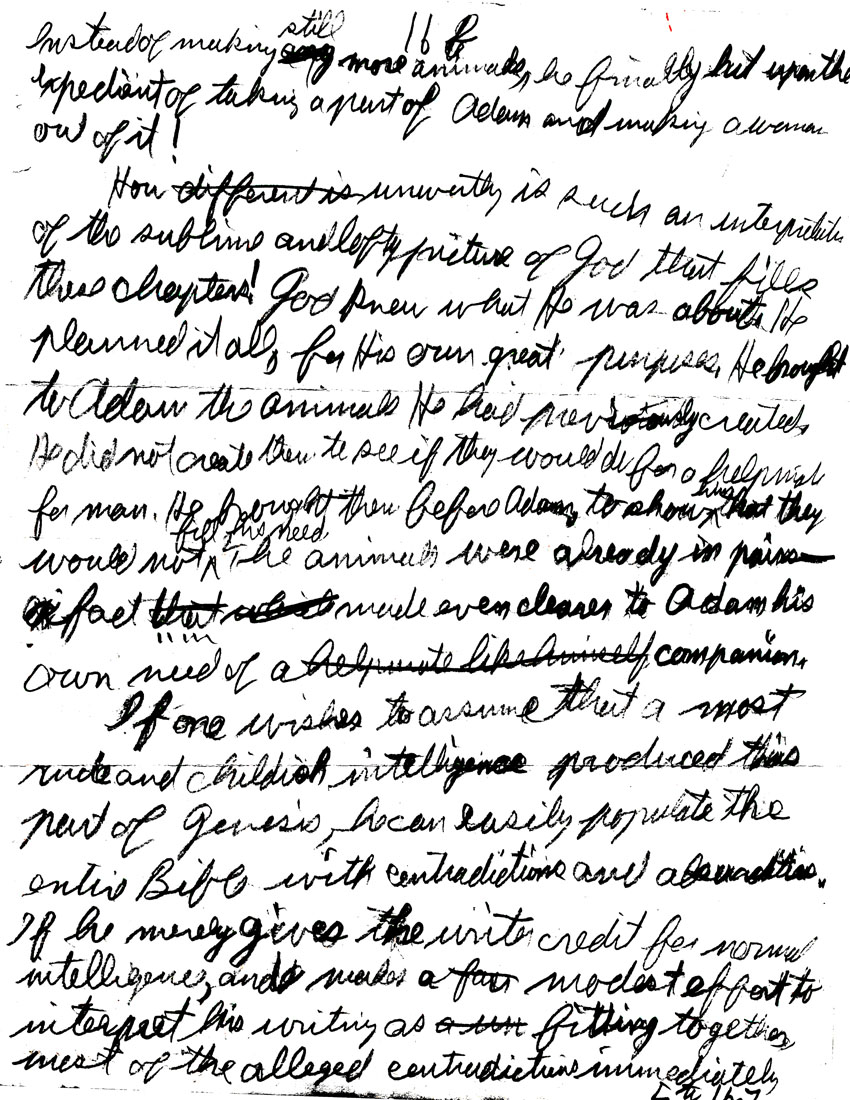 16 b
Instead of making still more animals, he finally hit upon the
expedient of taking a part of Adam and making a woman
out of it!
How different is unworthy is such an interpretation
of the sublime and lofty picture of God that fills
these chapters! God knew what He was about. He
planned it all, for His own great purposes. He brought
to Adam the animals He had previously created.
He did not create them to see if they would do for a helpmate
for man. He brought them before Adam, to show him that they
would not fill his need. The animals were already in pairs—
a fact that which made even clearer to Adam his
own need of a helpmate like himself companion.
If one wishes to assume that a most
rude and childish intelligence produced this
part of Genesis, he can easily populate the
entire Bible with contradictions and absurdities.
If he merely gives the writer credit for normal
intelligence, and makes a fair modest effort to
interpret his writing as a un fitting together,
most of the alleged contradictions immediately